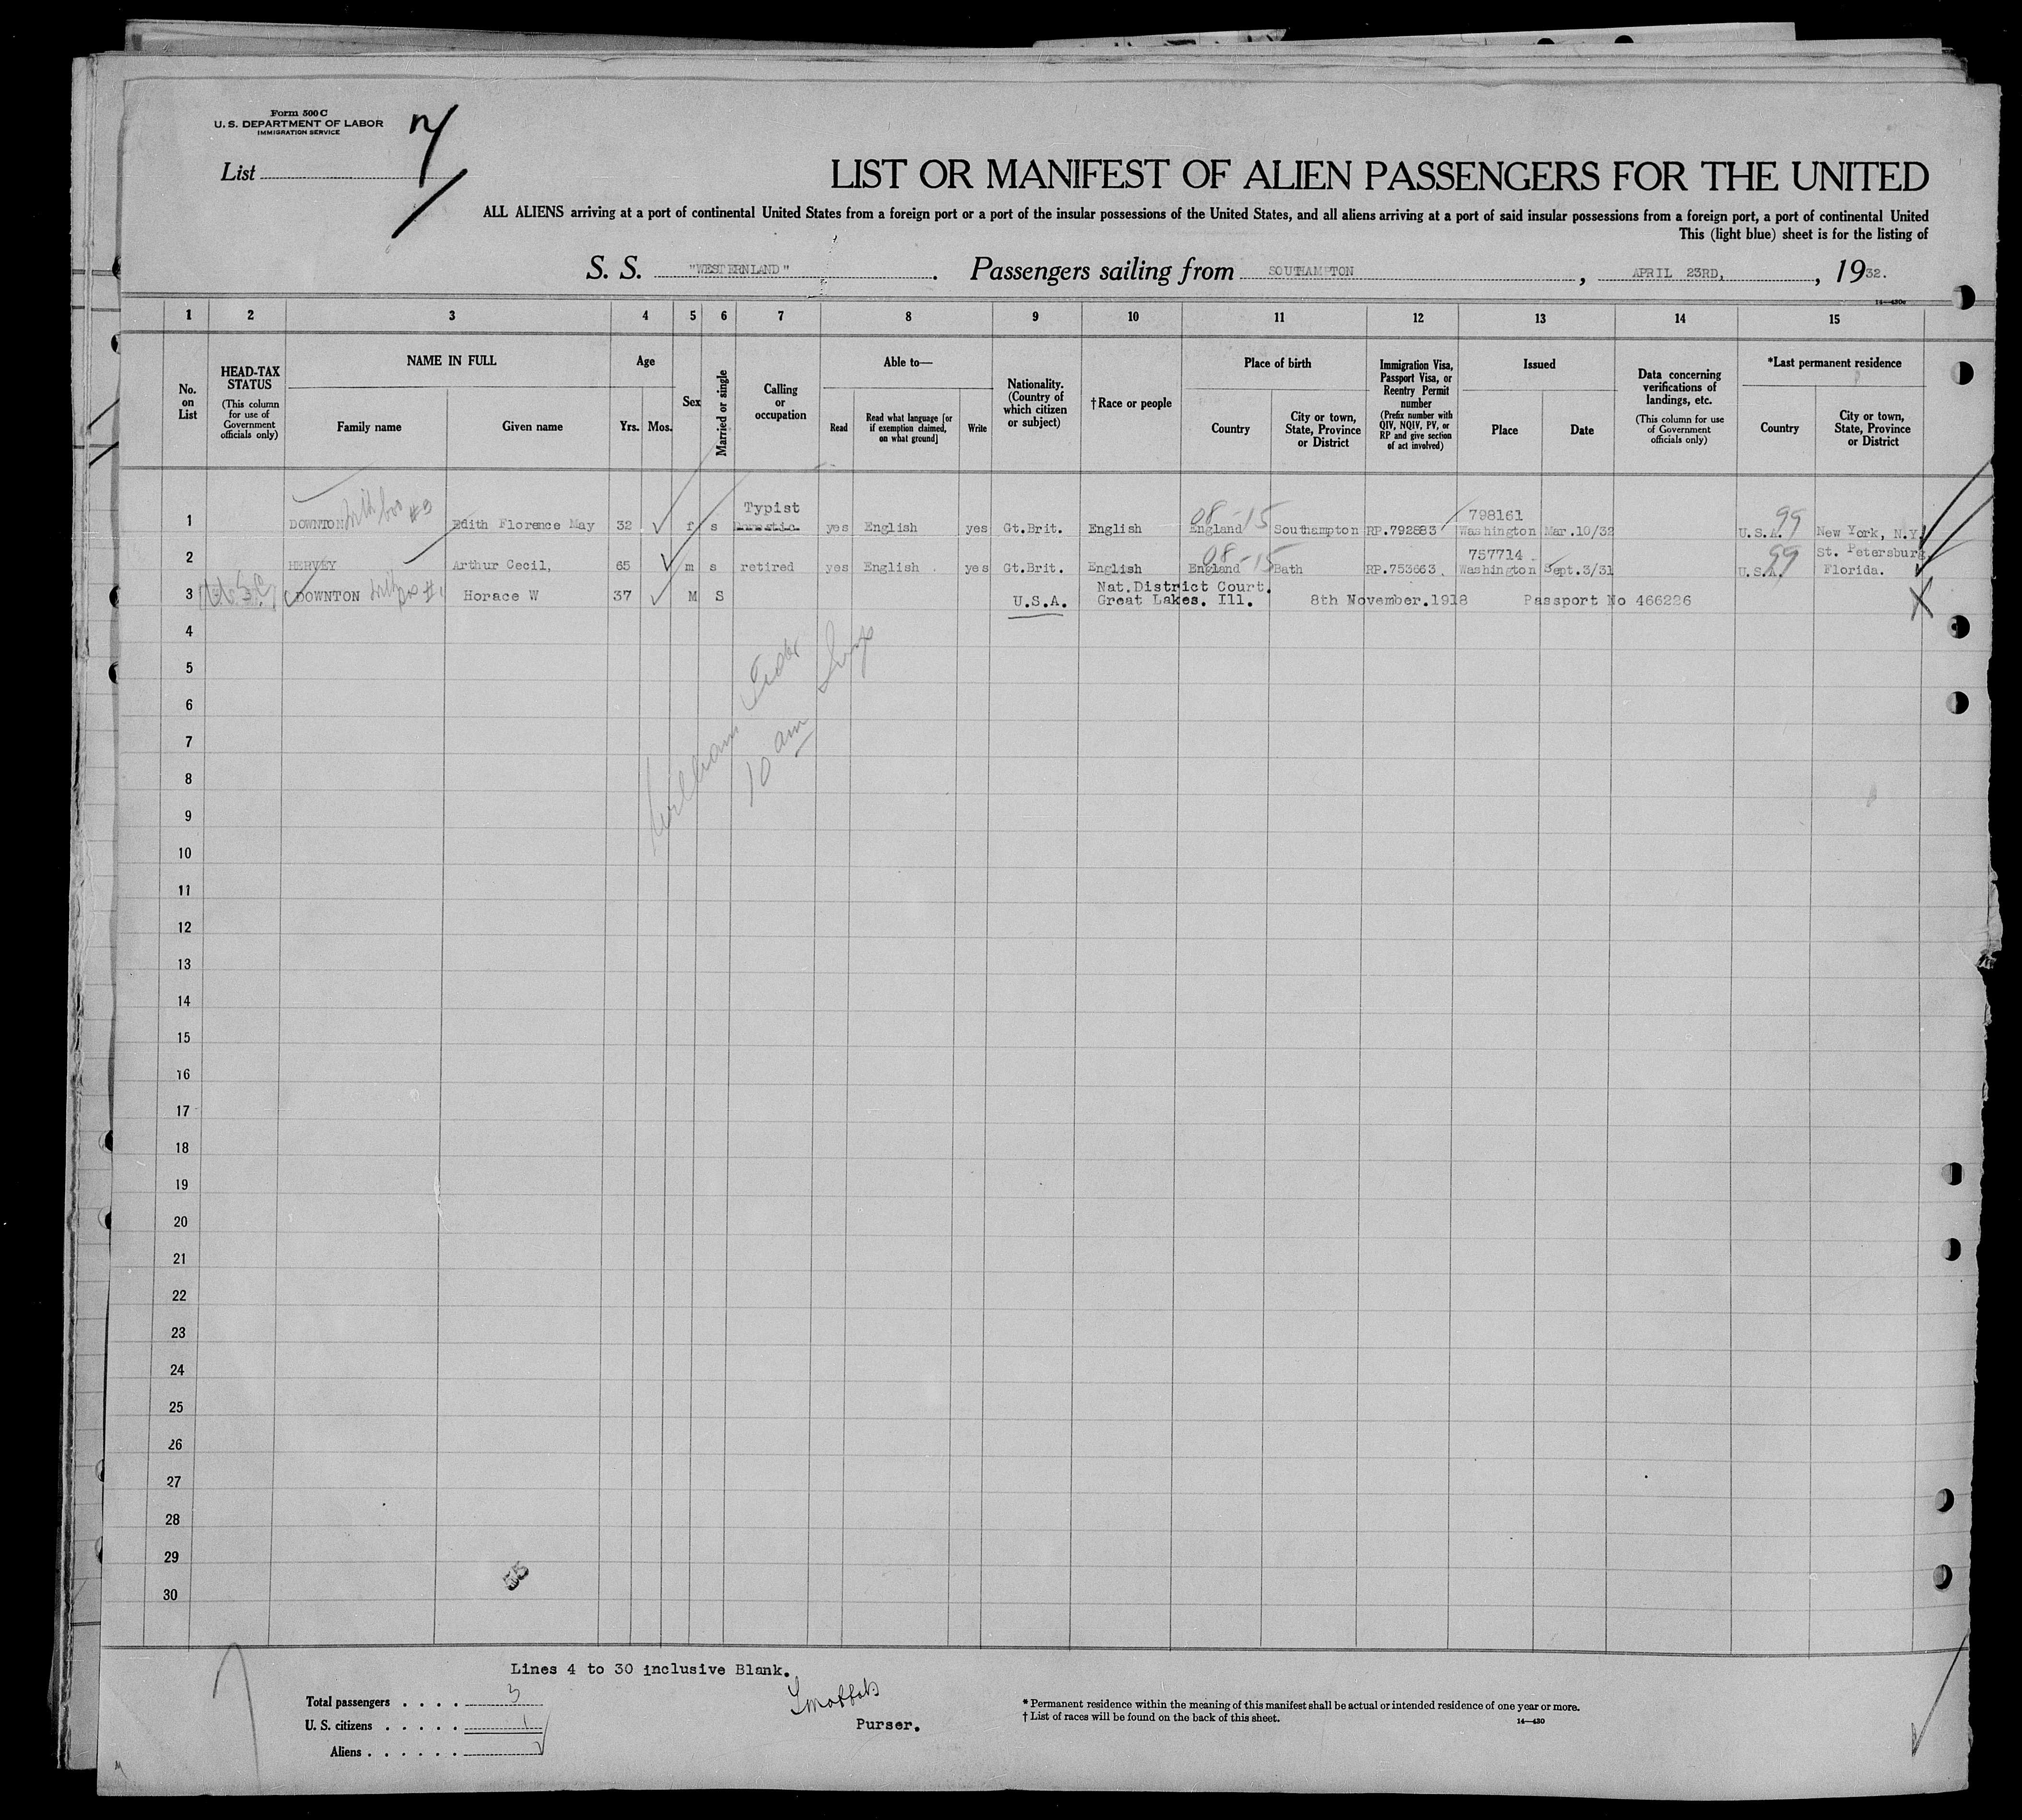 Form 500 C
U. S. DEPARTMENT OF LABOR
IMMIGRATION SERVICE
List
LIST OR MANIFEST OF ALIEN PASSENGERS FOR THE UNITED
ALL ALIENS arriving at a port of continental United States from a foreign port or a port of the insular possessions of the United States, and all aliens arriving at a port of said insular possessions from a foreign port, a port of continental United
This (light blue) sheet is for the listing of
S. S. "WESTERNLAND". Passengers sailing from SOUTHAMPTON, APRIL 23RD, 1932.
14—430c
1 2 3 4 5 6 7 8 9 10 11 12 13 14 15
No. on List
HEAD-TAX STATUS
(This column for use of Government officials only)
NAME IN FULL
Family name
Given name
Age
Yrs. Mos.
Sex
Married or single
Calling or occupation
Able to—
Read
Read what language [or if exemption claimed, on what ground]
Write
Nationality. (Country of which citizen or subject)
†Race or people
Place of birth
Country
City or town, State, Province or District
Immigration Visa, Passport Visa, or Reentry Permit number
(Prefix number with QIV, NQIV, PV, or RP and give section of act involved)
Issued
Place
Date
Data concerning verifications of landings, etc.
(This column for use of Government officials only)
*Last permanent residence
Country
City or town, State, Province or District
Typist 08-15 798161 99
1 DOWNTON with bro #3 Edith Florence May 32 f s Domestic yes English yes Gt.Brit. English England Southampton RP.792883 Washington Mar.10/32 U.S.A. New York, N.Y.
08-15 757714 99 St. Petersburg
2 HERVEY Arthur Cecil, 65 m s retired yes English yes Gt.Brit. English England Bath RP.753663 Washington Sept.3/31 U.S.A. Florida.
Nat.District Court.
3 DOWNTON #1 Horace W 37 M S U.S.A. Great Lakes. Ill. 8th November.1918 Passport No 466226
4
5
William
6
7
10 am
8
9
10
11
12
13
14
15
16
17
18
19
20
21
22
23
24
25
26
27
28
29
55
30
Lines 4 to 30 inclusive Blank.
Total passengers . . . . 3
U. S. citizens . . . . . 1
Aliens . . . . . .
Purser.
* Permanent residence within the meaning of this manifest shall be actual or intended residence of one year or more.
† List of races will be found on the back of this sheet.
14—430